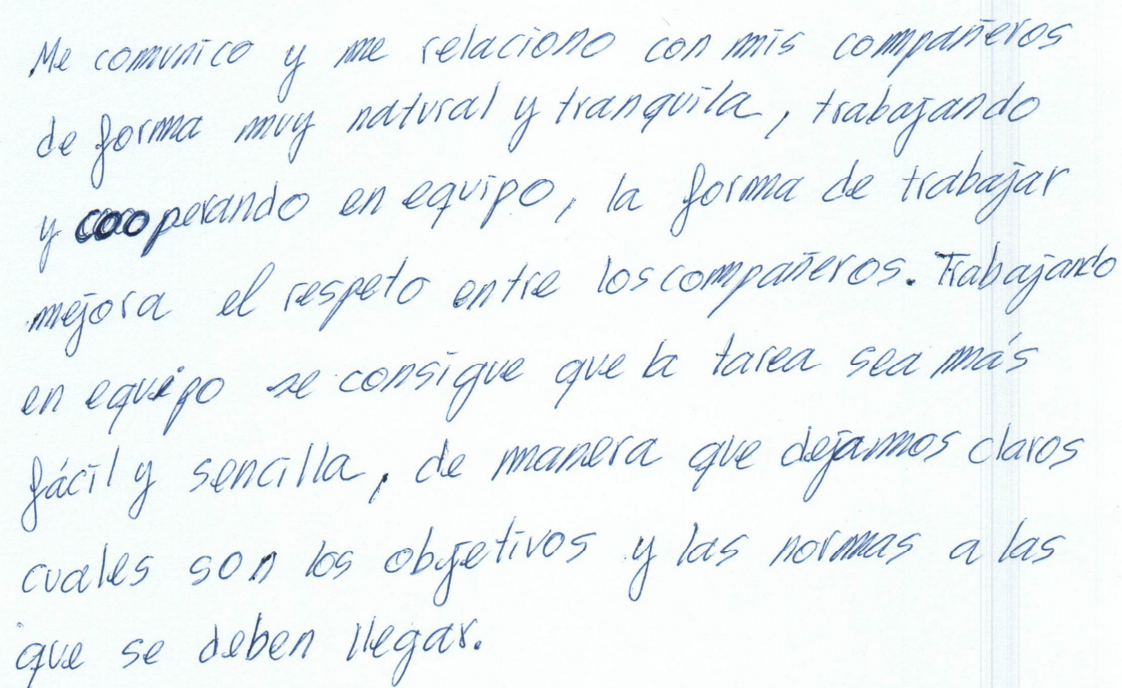 Me comunico y me relaciono con mis compañeros
de forma muy natural y tranquila, trabajando
y cooperando en equipo, la forma de trabajar
mejora el respeto entre los compañeros. Trabajando
en equipo se consigue que la tarea sea más
fácil y sencilla, de manera que dejamos claros
cuales son los objetivos y las normas a las
que se deben llegar.